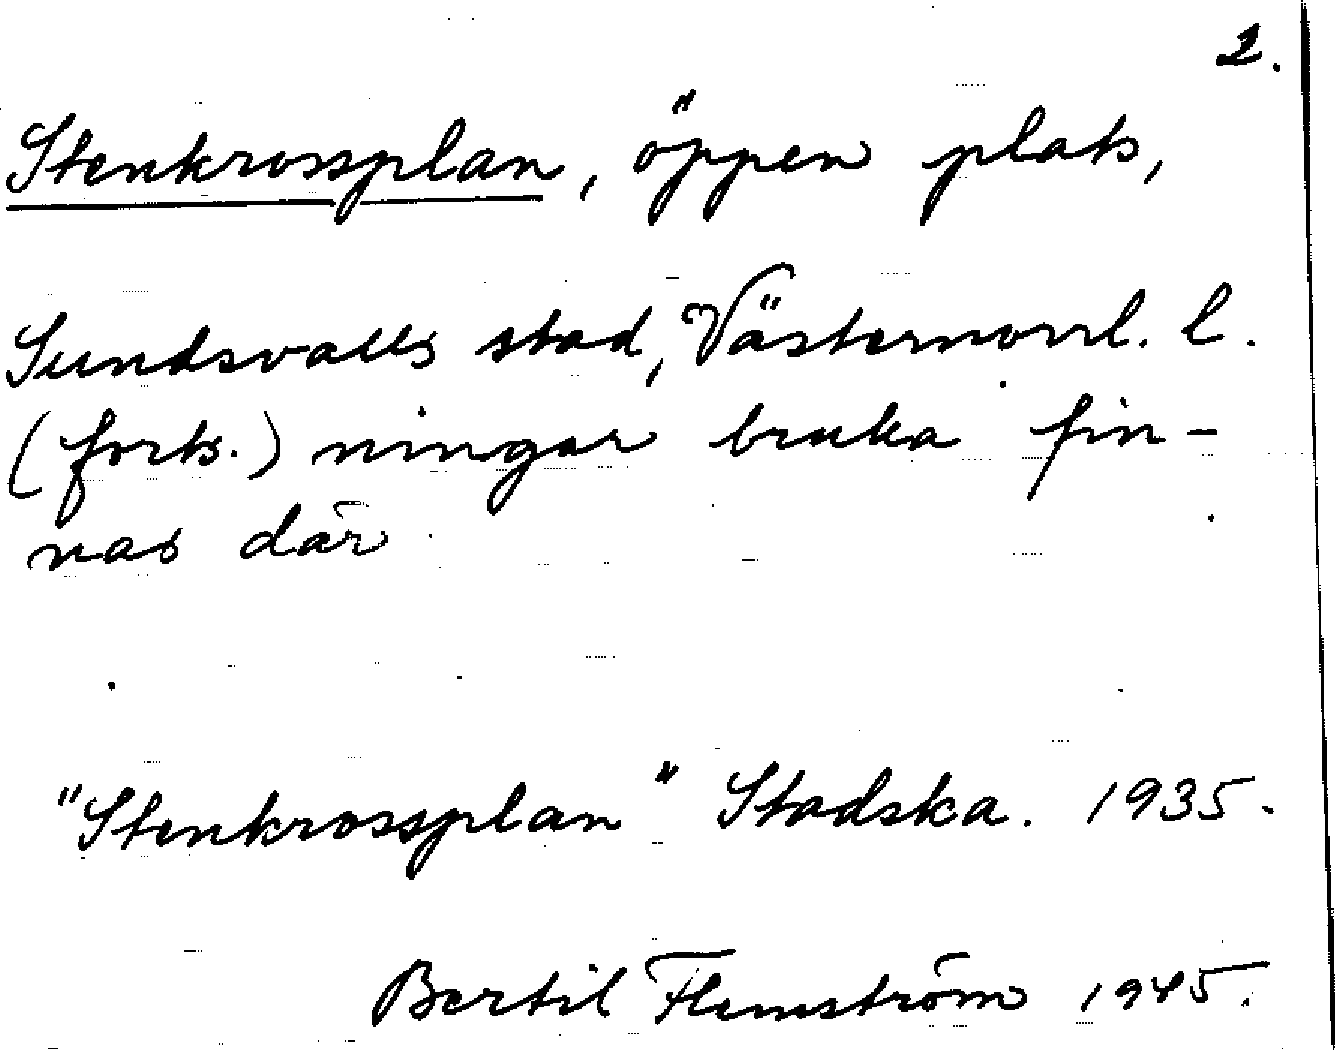 2.
Stenkrossplan, öppen plats,
Sundsvalls stad, Västernorrl. l.
(forts.) ningar bruka fin-
nas där
"Stenkrossplan" Stadska. 1935.
Bertil Flemström 1945.